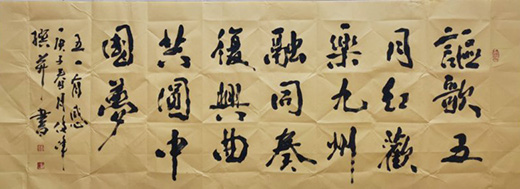 謳歌五
月紅歡
樂九州
融同奏
復興曲
共圓中
國夢
五一有感
庚子春月
撰並書